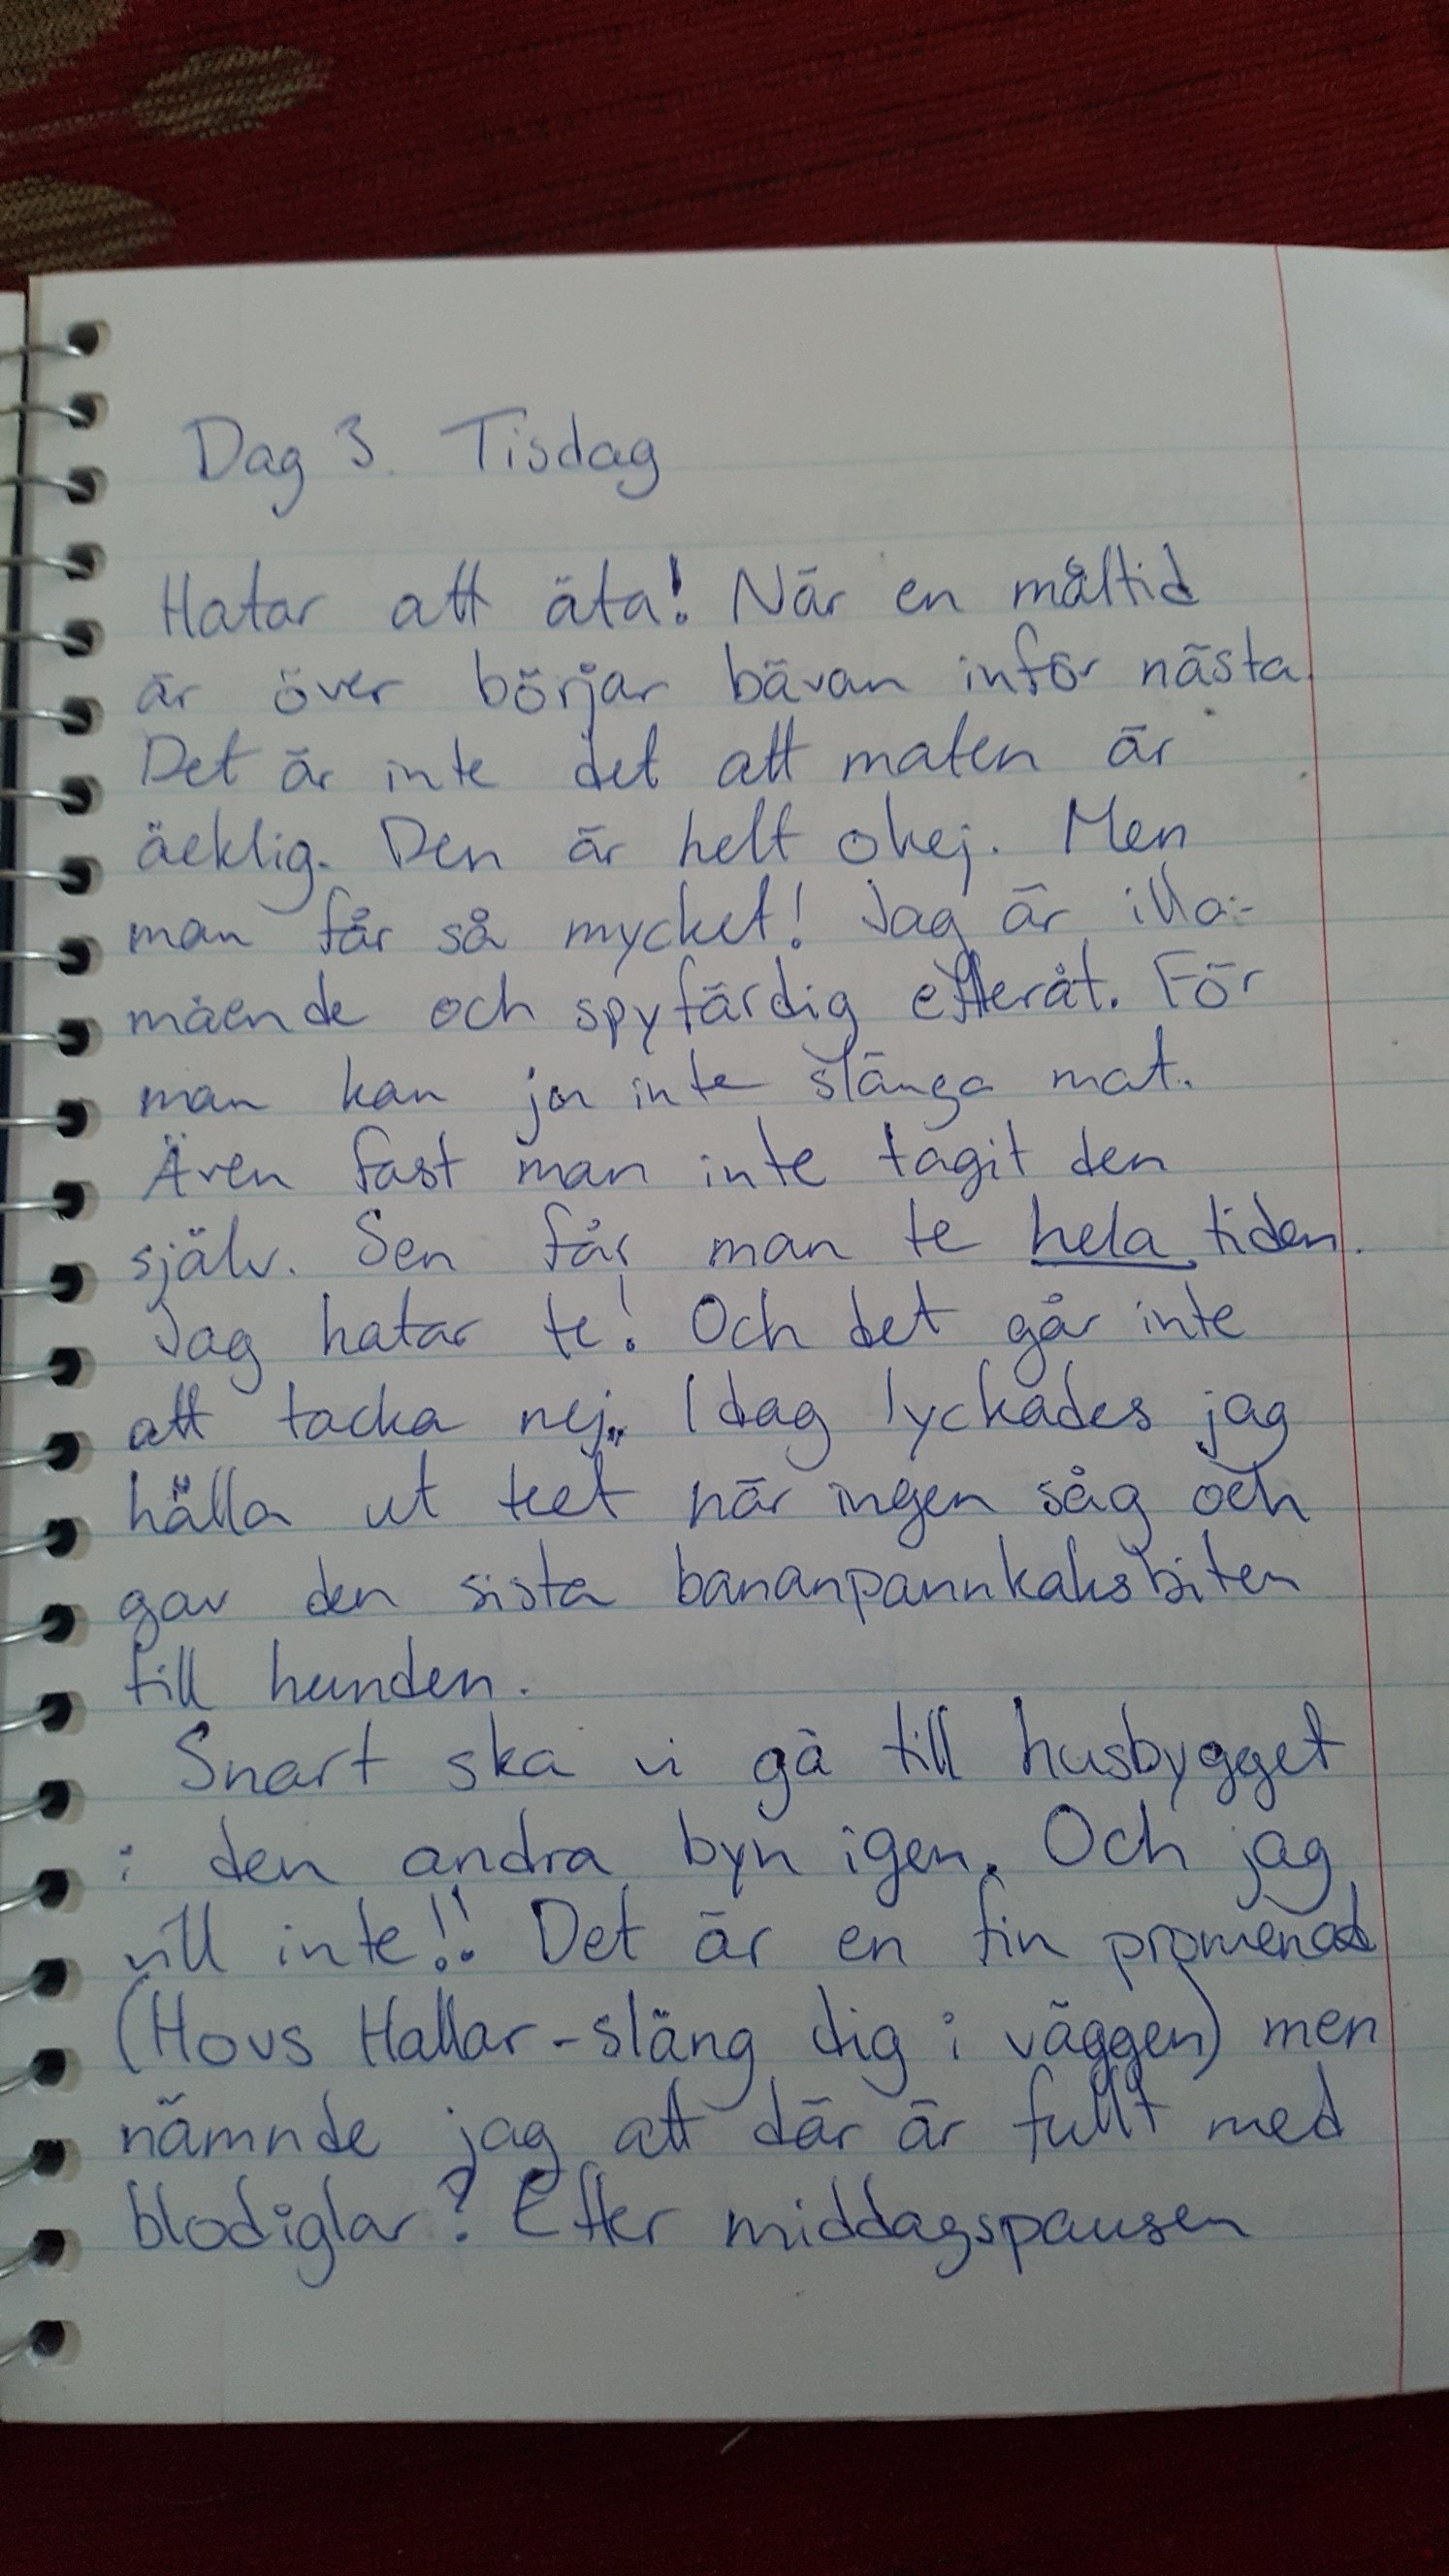 Dag 3. Tisdag
Hatar att äta! När en måltid
är över börjar bävan inför nästa.
Det är inte det att maten är
äcklig. Den är helt okej. Men
man får så mycket! Jag är illa-
mående och spyfärdig efteråt. För
man kan ju inte slänga mat.
Även fast man inte tagit den
själv. Sen får man te hela tiden.
Jag hatar te! Och det går inte
att tacka nej. Idag lyckades jag
hälla ut teet när ingen såg och
gav den sista bananpannkaksbiten
till hunden.
Snart ska vi gå till husbygget
i den andra byn igen. Och jag
vill inte!! Det är en fin promenad
(Hovs Hallar - släng dig i väggen) men
nämnde jag att där är fullt med
blodiglar? Efter middagspausen